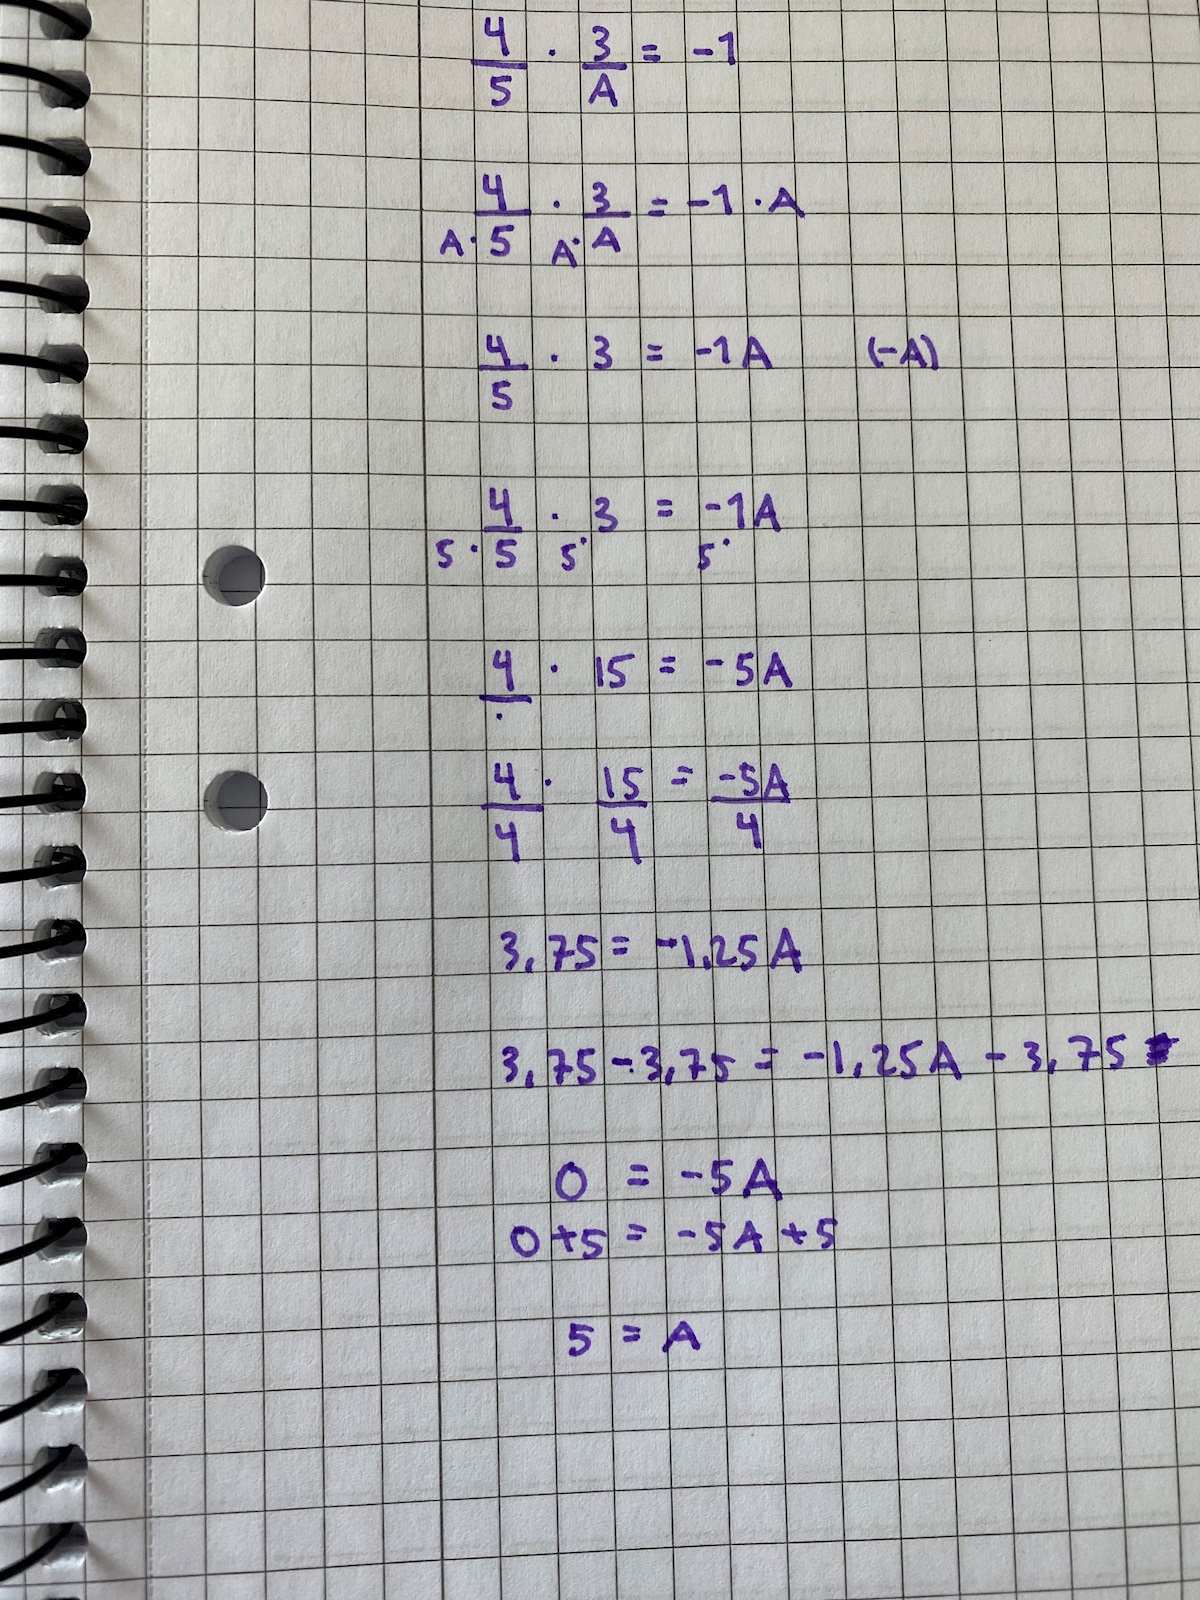 4/5 · 3/A = -1
4/A·5 · 3/A·A = -1 · A
4/5 · 3 = -1A (-A)
4/5·5 · 3 5· = -1A 5·
4/· · 15 = -5A
4/4 · 15/4 = -5A/4
3,75 = -1,25A
3,75 - 3,75 = -1,25A - 3,75
0 = -5A
0+5 = -5A +5
5 = A